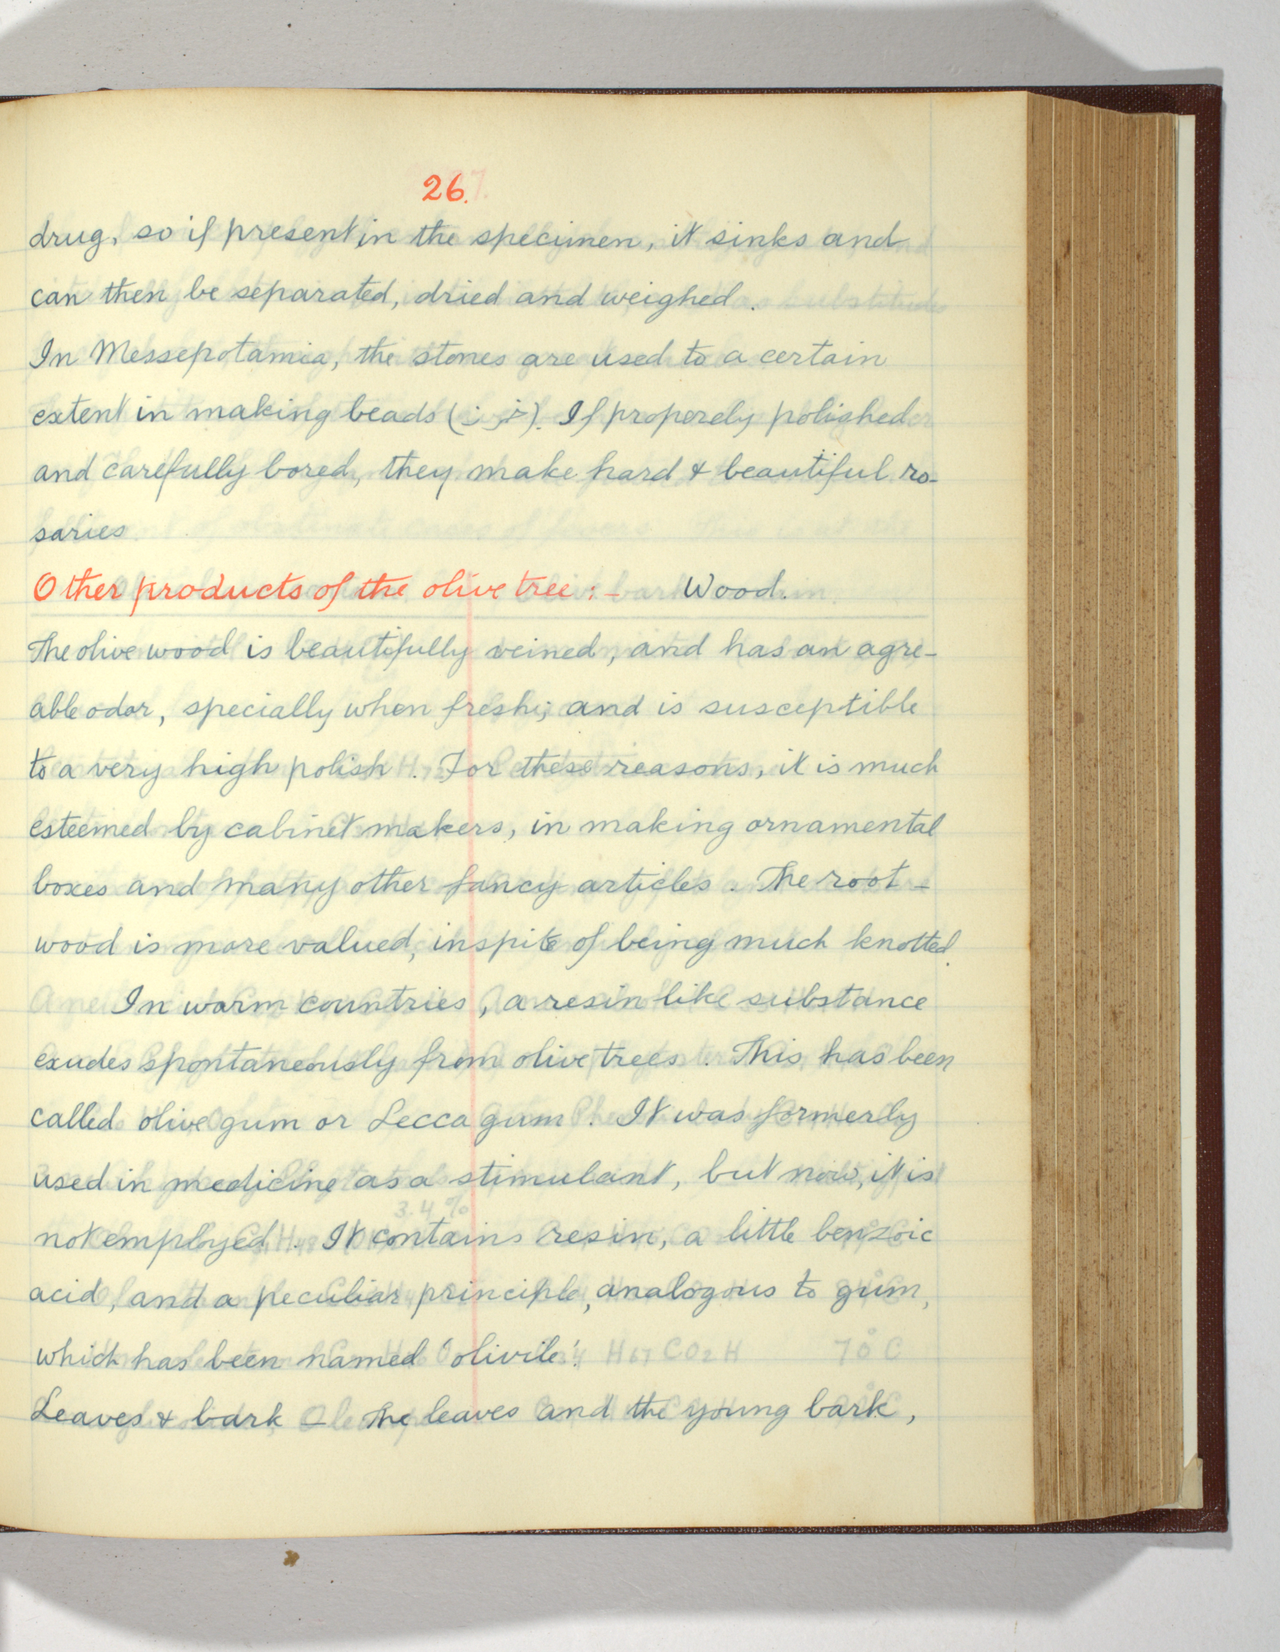 26.
drug, so if present in the specimen, it sinks and
can then be separated, dried and weighed.
In Messepotamia, the stones are used to a certain
extent in making beads (خرز). If properely polished
and carefully bored, they make hard & beautiful ro-
saries
Other products of the olive tree :- Wood.
The olive wood is beautifully veined, and has an agre-
able odor, specially when fresh; and is susceptible
to a very high polish. For these reasons, it is much
esteemed by cabinet makers, in making ornamental
boxes and many other fancy articles. The root-
wood is more valued, inspite of being much knotted.
In warm countries, a resin like substance
exudes spontaneously from olive trees. This has been
called olive gum or Lecca gum. It was formerly
used in medicine as a stimulant, but now, it is
not employed. It contains resin, a little benzoic
acid, and a peculiar principle, analogous to gum,
which has been named "olivile".
Leaves & bark — The leaves and the young bark,